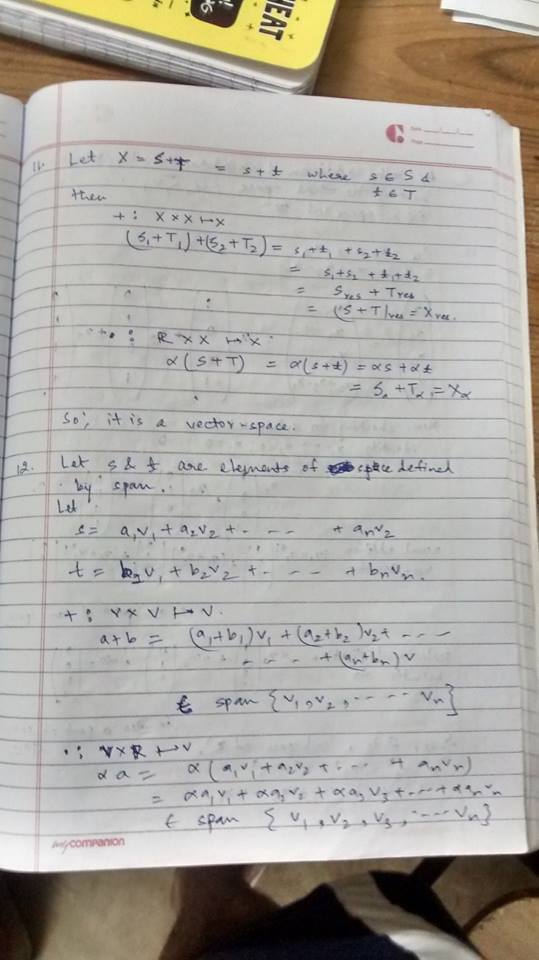 HEAT
11. Let X = S+T = s+t where s ∈ S &
t ∈ T
then
+ : X×X ↦ X
(S₁+T₁)+(S₂+T₂) = s₁+t₁ +s₂+t₂
= s₁+s₂ + t₁+t₂
= Sres + Tres
= (S+T)res = Xres.
• : R×X ↦ X
α(S+T) = α(s+t) = αs+αt
= Sα+Tα = Xα
So, it is a vector-space.
12. Let s & t are elements of space defined
by span.
Let
s = a₁v₁+a₂v₂+ - - - - + aₙv₂
t = b₁v₁+b₂v₂+ - - - - + bₙvₙ.
+ : V×V ↦ V.
a+b = (a₁+b₁)v₁+(a₂+b₂)v₂+ - - - -
- - - - +(aₙ+bₙ)v
∈ span {v₁,v₂, - - - - vₙ}
• : V×R ↦ V
αa = α(a₁v₁+a₂v₂+ - - - + aₙvₙ)
= αa₁v₁+αa₂v₂+αa₃v₃+ - - - +αaₙvₙ
∈ span {v₁,v₂,v₃, - - - - vₙ}
mycompanion